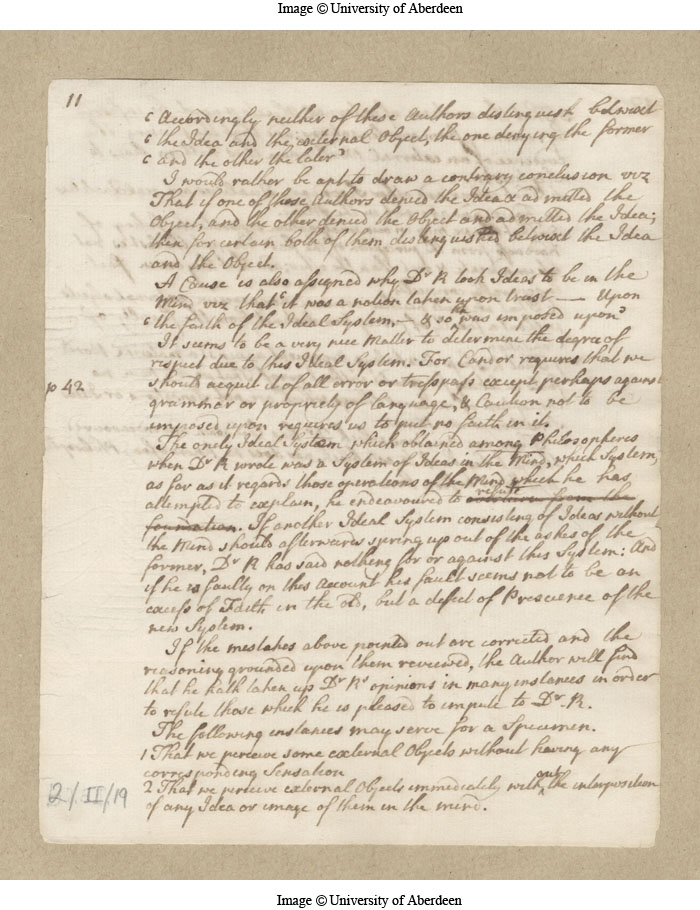 Image © University of Aberdeen
11
‘ Accordingly neither of these Authors distinguish betwixt
‘ the Idea and the external Object, the one denying the former
‘ and the other the later’
I would rather be apt to draw a contrary conclusion viz
That if one of those Authors denied the Idea & admitted the
Object, and the other denied the Object and admitted the Idea;
then for certain both of them distinguished betwixt the Idea
and the Object.
A Cause is also assigned why Dr R took Ideas to be in the
Mind viz that ‘it was a notion taken upon trust — Upon
‘ the faith of the Ideal System, — & so was imposed upon’
It seems to be a very nice Matter to determine the degree of
respect due to this Ideal System. For Candor requires that we
p 42
should acquit it of all error or tresspass except perhaps against
grammar or propriety of language, & Caution not to be
imposed upon requires us to put no faith in it.
The onely Ideal System which obtained among Philosophers
when Dr R wrote was a System of Ideas in the Mind, which System,
as far as it regards those operations of the Mind which he has
attempted to explain, he endeavoured to refute
foundation. If another Ideal System consisting of Ideas without
the Mind should afterwards spring up out of the ashes of the
former, Dr R has said nothing for or against this System: And
if he is faulty on this Account his fault seems not to be an
excess of Faith in the old, but a defect of Prescience of the
new System.
If the mistakes above pointed out are corrected and the
reasoning grounded upon them reviewed, the Author will find
that he hath taken up Dr Rs opinions in many instances in order
to refute those which he is pleased to impute to Dr R.
The following instances may serve for a Specimen.
1 That we perceive some external Objects without having any
corresponding Sensation
2 That we perceive external Objects immediately without the interposition
of any Idea or image of them in the mind.
2/II/19
Image © University of Aberdeen